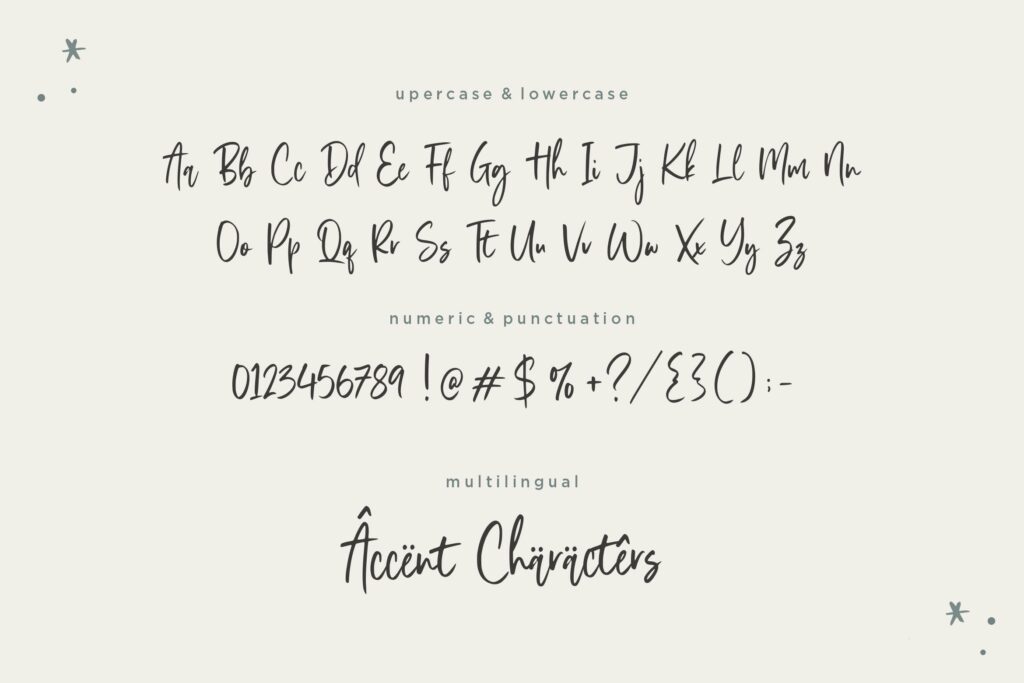 upercase & lowercase
Aa Bb Cc Dd Ee Ff Gg Hh Ii Jj Kk Ll Mm Nn
Oo Pp Qq Rr Ss Tt Uu Vv Ww Xx Yy Zz
numeric & punctuation
0123456789 ! @ # $ % + ? / { } ( ) ; -
multilingual
Âccënt Chäräctêrs